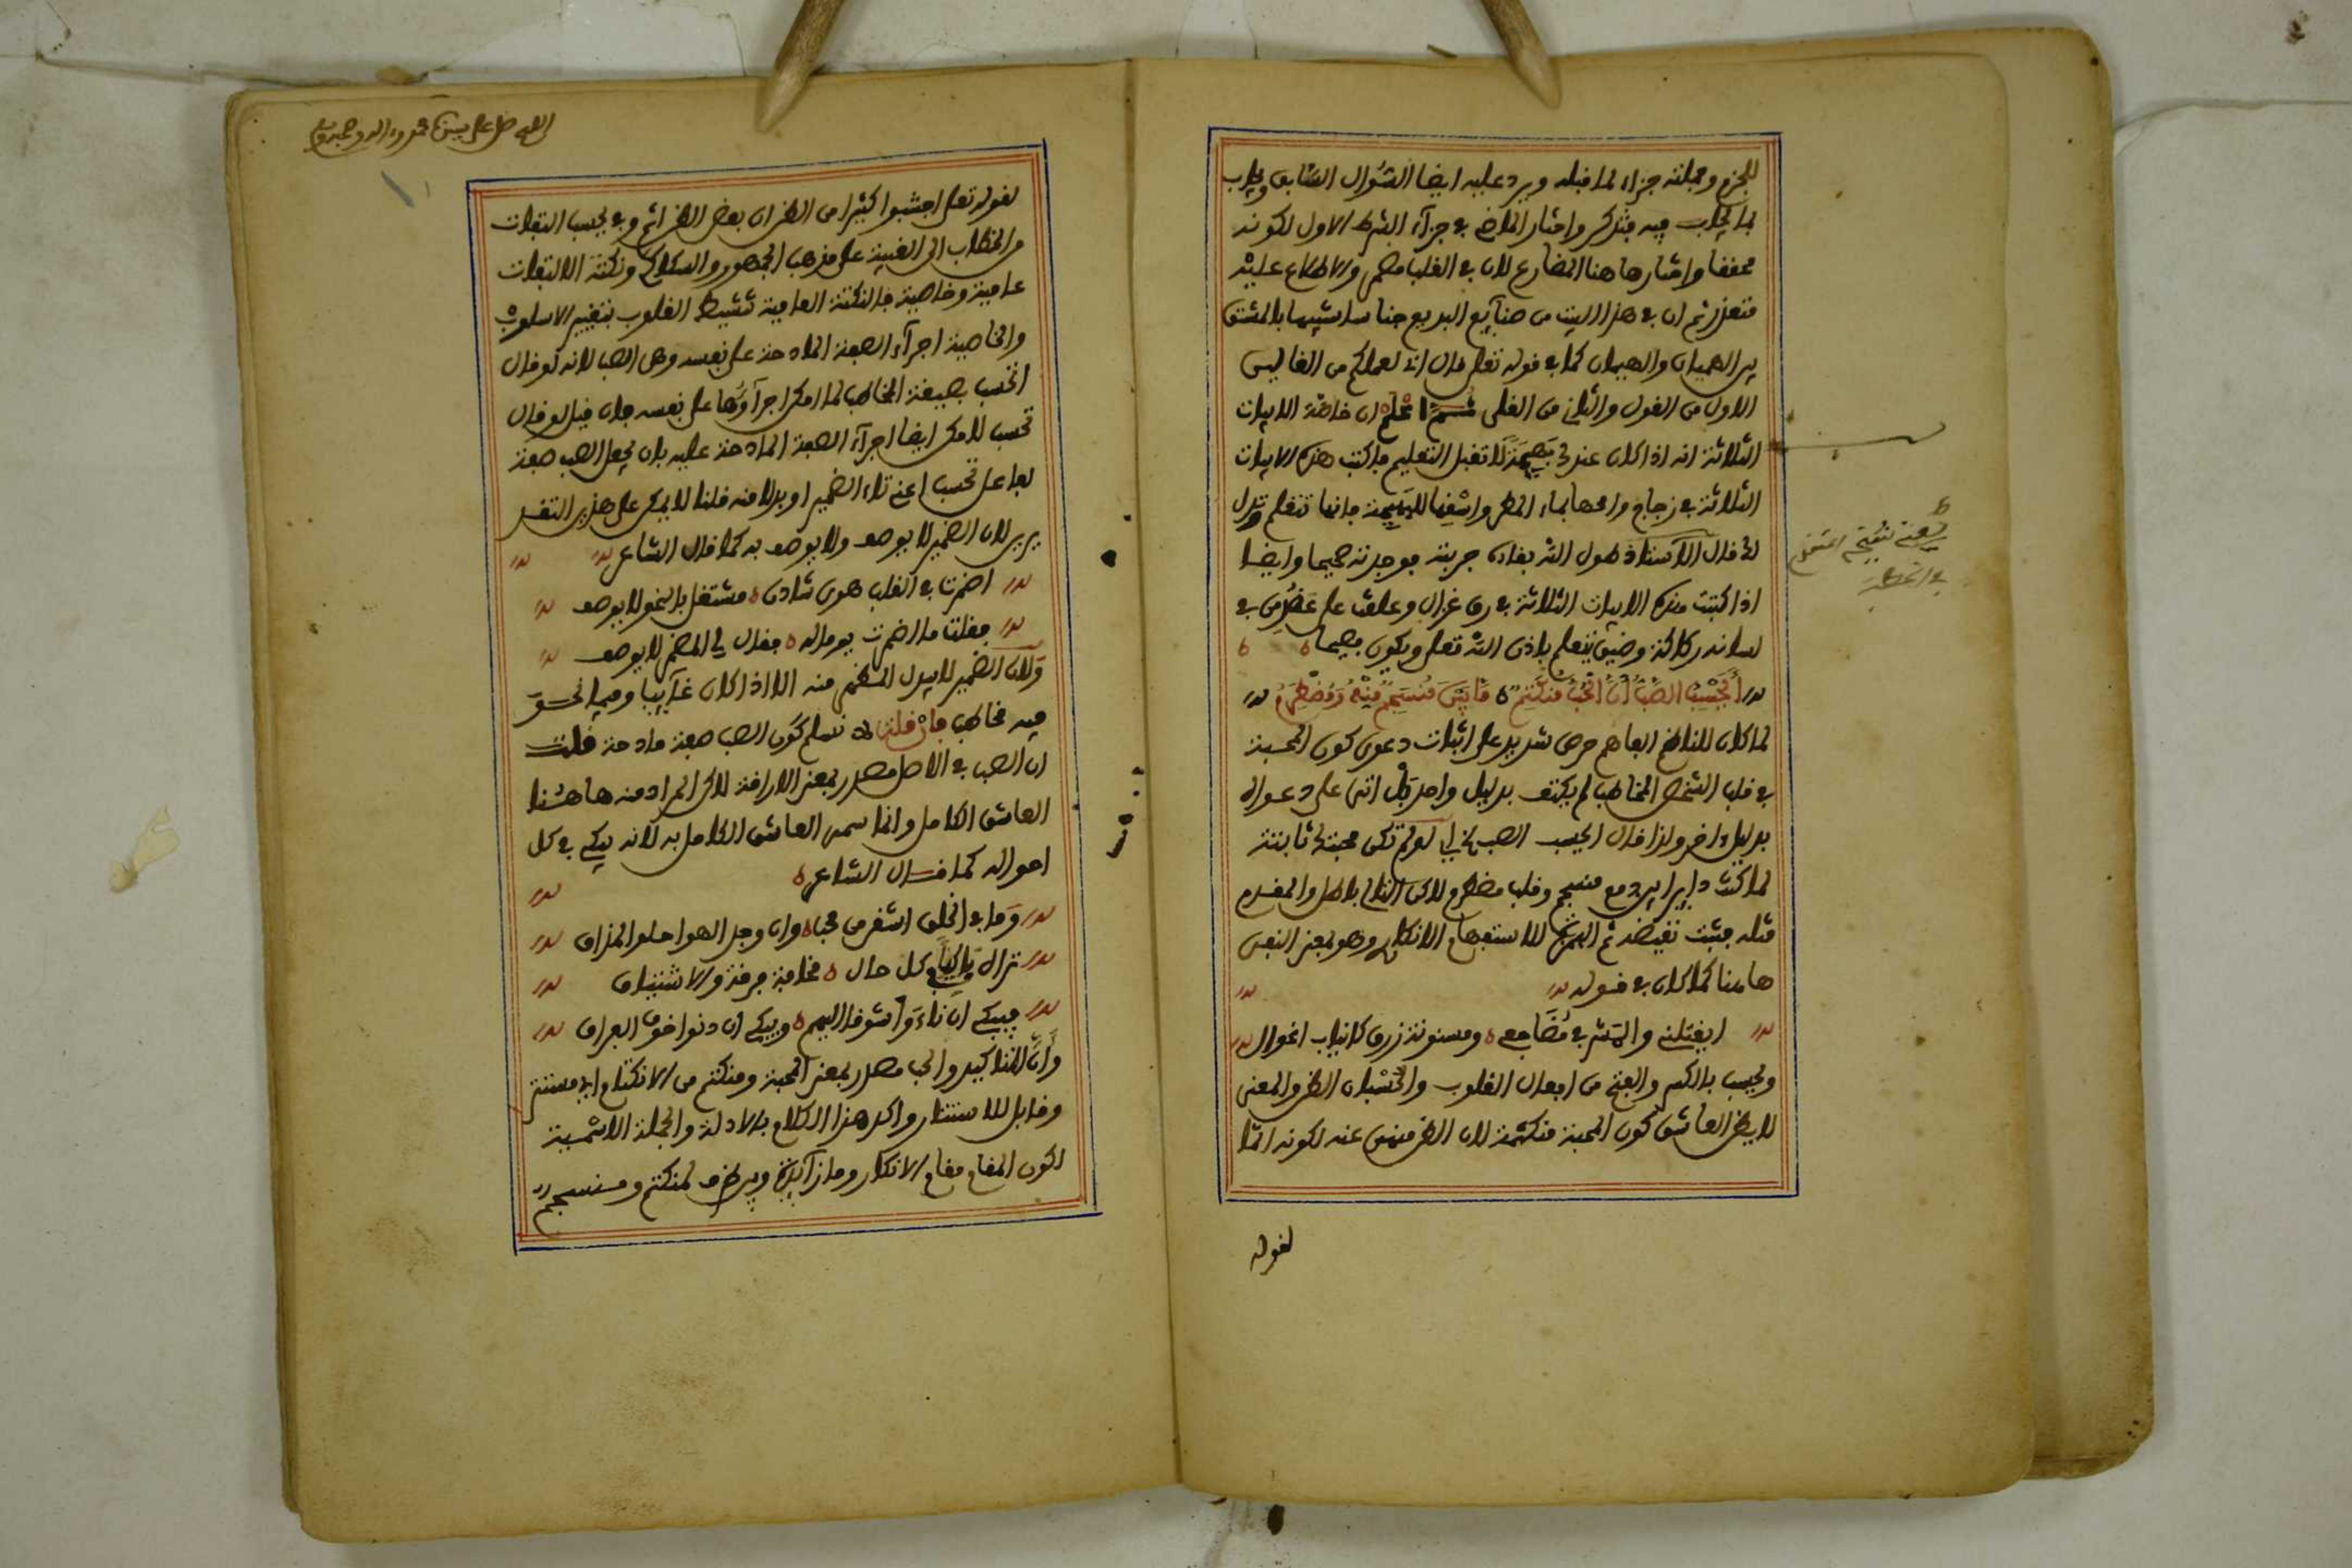 للجزم وجملته جزاء لما قبله ويرد عليه ايضا السؤال السابق ويجاب
بما يجاب فيه فتذكر واختار الماضي في جزاء الشرط الاول لكونه
محققا واختار هاهنا المضارع لان في القلب مضمر والاطلاع عليه
متعذر ثم ان في هذا البيت من صنايع البديع جناسا شبيها بالمشتق
بين الهميان والهيمان كما في قوله تعلى قال اني لعملكم من القالين
الاول من القول والثاني من القلى ثم اعلم ان خاصة الابيات
الثلاثة انه اذا كان عندك بهيمة لا تقبل التعليم فاكتب هذه الابيات
الثلاثة في زجاج وامحها بماء المطر واسقها للبهيمة فانها تتعلم وتذل
لك قال الاستاذ هول الله بقاءه جربته فوجدته صحيحا وايضا
اذا كتبت هذه الابيات الثلاثة في رق غزال وعلقت على عضد من في
لسانه ركاكة وضيق يتعلم باذن الله تعلى ويكون فصيحا
أَيَحْسِبُ الصَّبُّ أَنَّ الْحُبَّ مُنْكَتِمٌ مَا بَيْنَ مُنْسَجِمٍ مِنْهُ وَمُضْطَرِمِ
لما كان للناظم الفاهم حرص شديد على اثبات دعوى كون المحبة
في قلب الشخص المخاطب لم يكتف بدليل واحد بل اتى على دعواه
بدليل اخر ولذا قال ايحسب الصب الخ اي لو لم تكن محبتك ثابتة
لما كنت دايرا بين دمع منسجم وقلب مضطرم ولاكن التالي باطل والمقدم
مثله فثبت نقيضه ثم الهمزة للاستفهام الانكاري وهو بمعنى النفي
هاهنا كما كان في قوله
ايقتلني والمشرفي مضاجعي ومسنونة زرق كانياب اغوال
ويحسب بالكسر والفتح من افعال القلوب والحسبان الظن والمعنى
لا يظن العاشق كون المحبة منكتمة لان الظن منهي عنه لكونه اثما
لقوله
يعنى نتيجتهم
اللهم صل على سيدنا محمد وءاله وصحبه
لقوله تعلى اجتنبوا كثيرا من الظن ان بعض الظن اثم وفي يحسب التفات
من الخطاب الى الغيبة على مذهب الجمهور والسكاكي ونكتة الالتفات
عامية وخاصية فالنكتة العامية تنشيط القلوب بتغيير الاسلوب
والخاصية اجراء الصفة المادحة على نفسه وهي الصب لانه لو قال
اتحسب بصيغة المخاطب لما امكن اجراؤها على نفسه فان قيل لو قال
تحسب لامكن ايضا اجراء الصفة المادحة عليه بان يجعل الصب صفة
لفاعل تحسب اعني تاء الضمير او بدلا منه قلنا لا يمكن على هذين التقد
يرين لان الضمير لا يوصف ولا يوصف به كما قال الشاعر
اضمرت في القلب هوى شادن مشتغل بالنحو لا يوصف
فقلت ما اضمرت يوما له فقال لي المضمر لا يوصف
ولان الضمير لا يبدل المظهر منه الا اذا كان غايبا وفيما نحن
فيه مخاطب فان قلت لا نسلم كون الصب صفة مادحة قلت
ان الصب في الاصل مصدر بمعنى الاراقة لاكن المراد منه هاهنا
العاشق الكامل وانما سمي العاشق الكامل به لانه يبكي في كل
احواله كما قال الشاعر
وما في الخلق اشقى من محب وان وجد الهوا حلو المذاق
تراه باكيا في كل حال مخافة فرقة والاشتياق
فيبكي ان ناءوا شوقا اليهم ويبكي ان دنوا خوف الفراق
وأنّ للتاكيد والحب مصدر بمعنى المحبة ومنكتم من الانكتام اي مستتر
وقابل للاستتار واكد هذا الكلام بالادلة والجملة الاسمية
لكون المقام مقام الانكار وما زايدة وبين ظرف لمنكتم ومنسجم